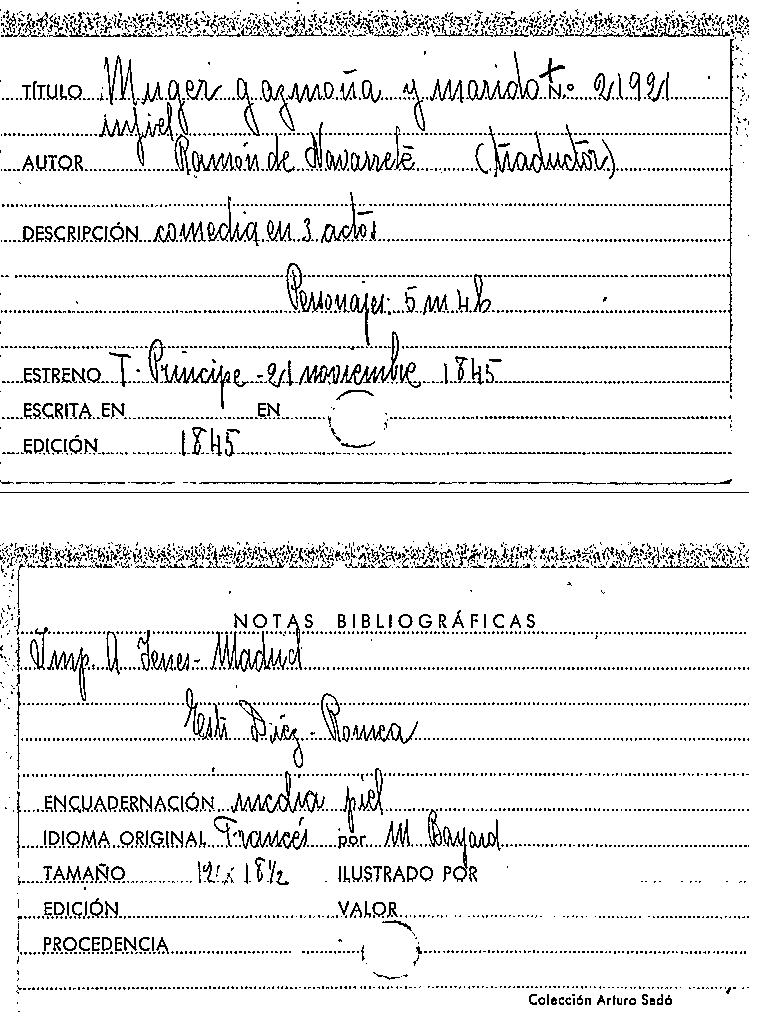 TÍTULO Muger gazmoña y marido + N.º 21921
infiel
AUTOR Ramón de Navarrete (traductor)
DESCRIPCIÓN comedia en 3 actos
Personajes: 5 m 4 h
ESTRENO T. Príncipe - 21 noviembre 1845
ESCRITA EN EN
EDICIÓN 1845
NOTAS BIBLIOGRÁFICAS
Imp. A Yenes - Madrid
Díez - Romea
ENCUADERNACIÓN media piel
IDIOMA ORIGINAL Francés por M Bayard
TAMAÑO 12 x 18 1/2 ILUSTRADO POR
EDICIÓN VALOR
PROCEDENCIA
Colección Arturo Sedó